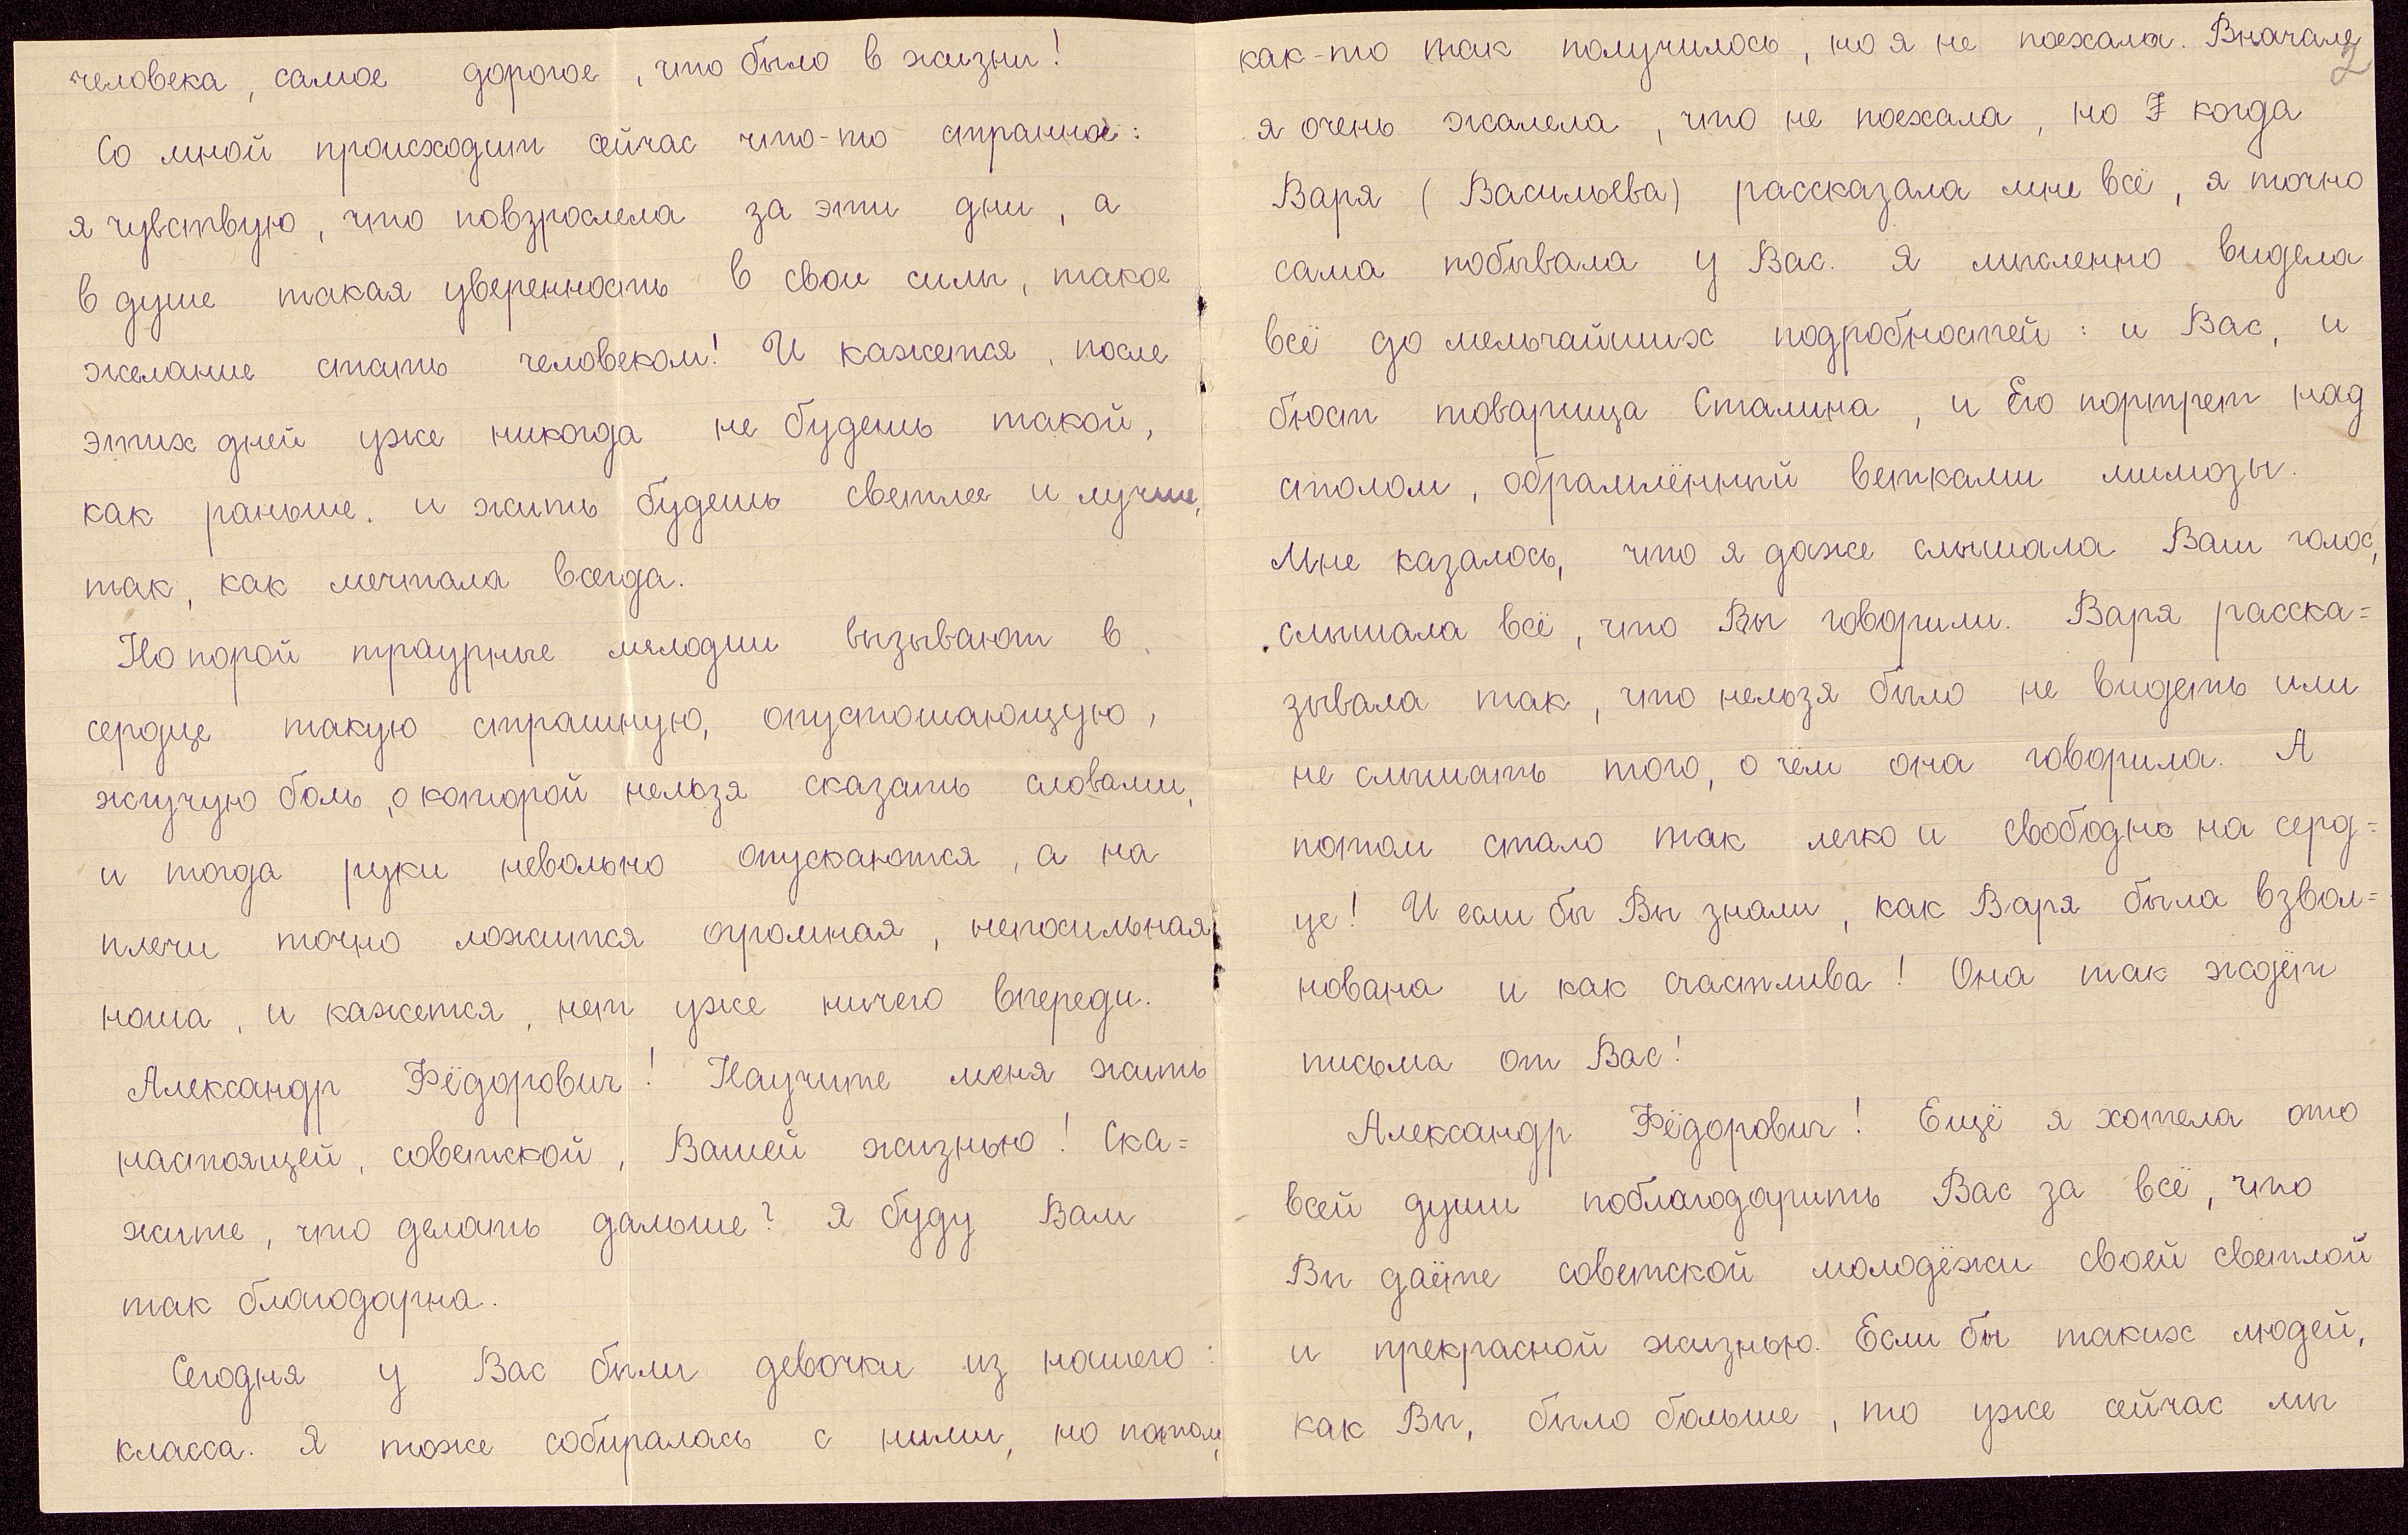 человека, самое дорогое, что было в жизни!
Со мной происходит сейчас что-то странное:
я чувствую, что повзрослела за эти дни, а
в душе такая уверенность в свои силы, такое
желание стать человеком! И кажется, после
этих дней уже никогда не будешь такой,
как раньше. и жить будешь светлее и лучше,
так, как мечтала всегда.
Но порой траурные мелодии вызывают в
сердце такую страшную, опустошающую,
жгучую боль, о которой нельзя сказать словами,
и тогда руки невольно опускаются, а на
плечи точно ложится огромная, непосильная
ноша, и кажется, нет уже ничего впереди.
Александр Фёдорович! Научите меня жить
настоящей, советской, Вашей жизнью! Ска=
жите, что делать дальше? Я буду Вам
так благодарна.
Сегодня у Вас были девочки из нашего
класса. Я тоже собиралась с ними, но потом,
2
как-то так получилось, но я не поехала. Вначале
я очень жалела, что не поехала, но когда
Варя (Васильева) рассказала мне всё, я точно
сама побывала у Вас. Я мысленно видела
всё до мельчайших подробностей: и Вас, и
бюст товарища Сталина, и Его портрет над
столом, обрамлённый ветками мимозы.
Мне казалось, что я даже слышала Ваш голос,
слышала всё, что Вы говорили. Варя расска=
зывала так, что нельзя было не видеть или
не слышать того, о чём она говорила. А
потом стало так легко и свободно на серд=
це! И если бы Вы знали, как Варя была взвол=
нована и как счастлива! Она так ждёт
письма от Вас!
Александр Фёдорович! Ещё я хотела ото
всей души поблагодарить Вас за всё, что
Вы даёте советской молодёжи своей светлой
и прекрасной жизнью. Если бы таких людей,
как Вы, было больше, то уже сейчас мы